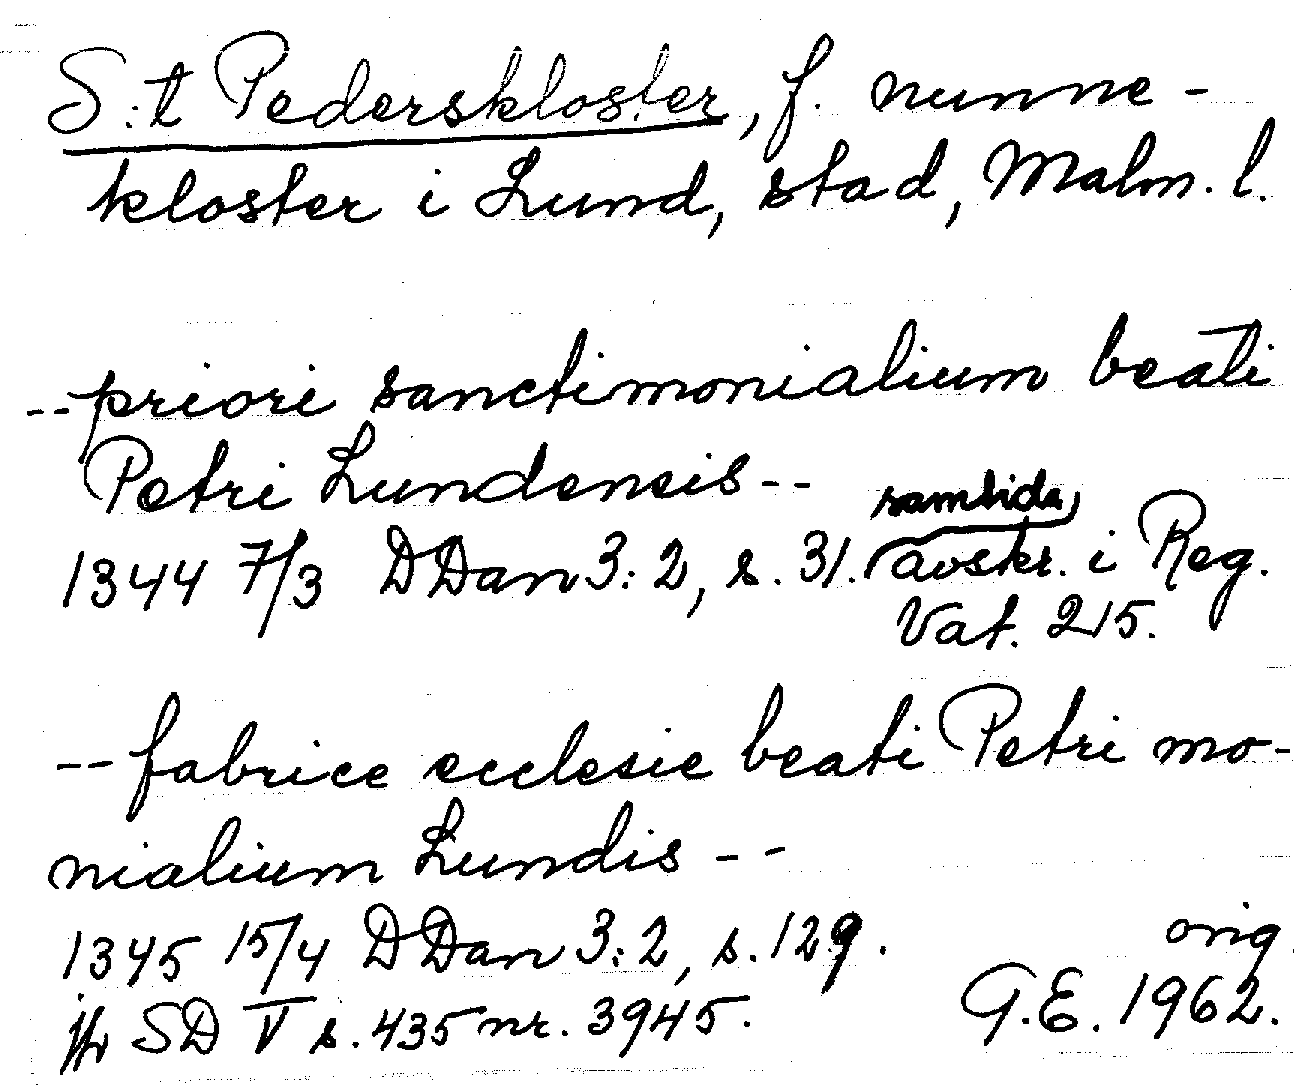 S:t Pederskloster, f. nunne-
kloster i Lund, stad, Malm. l.
--priori sanctimonialium beati
Petri Lundensis--
samtida
1344 7/3 DDan 3:2, s. 31. avskr. i Reg.
Vat. 215.
--fabrice ecclesie beati Petri mo-
nialium Lundis--
1345 15/4 DDan 3:2, s. 129. orig.
jfr SD V s. 435 nr. 3945. G.E. 1962.